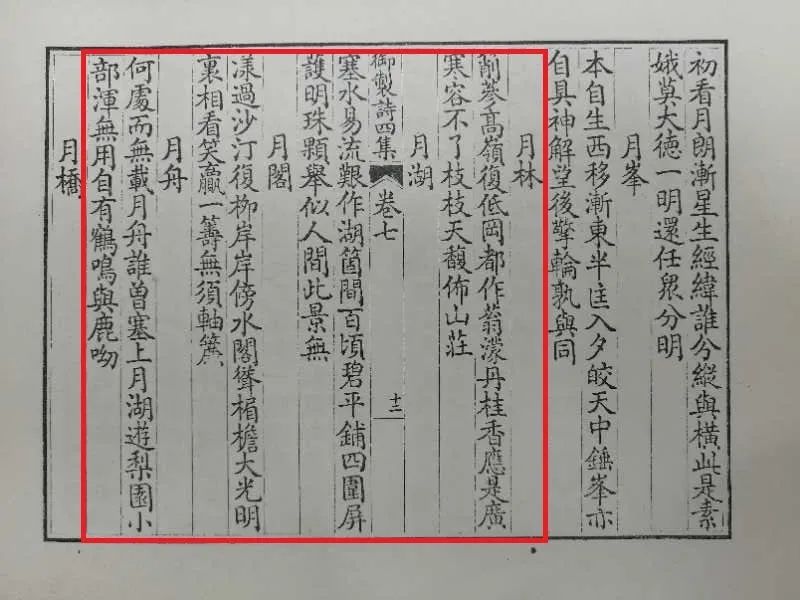 初看月朗漸星生經緯誰分縱與橫此是素
娥莫大徳一明還任衆分明
月峯
本自生西移漸東半庭入夕皎天中錘峯亦
自具神解望後擎輪孰與同
月林
削葠高嶺復低岡都作蓊濛丹桂香應是廣
寒容不了枝枝天馥佈山莊
御製詩四集 卷七 十二
月湖
塞水易流艱作湖箇間百頃碧平鋪四圍屏
護明珠顆舉似人間此景無
月閣
漾過沙汀復柳岸岸傍水閣聳楣檐大光明
裏相看笑贏一籌無須軸簾
月舟
何處而無載月舟誰曽塞上月湖遊梨園小
部渾無用自有鶴鳴與鹿呦
月橋